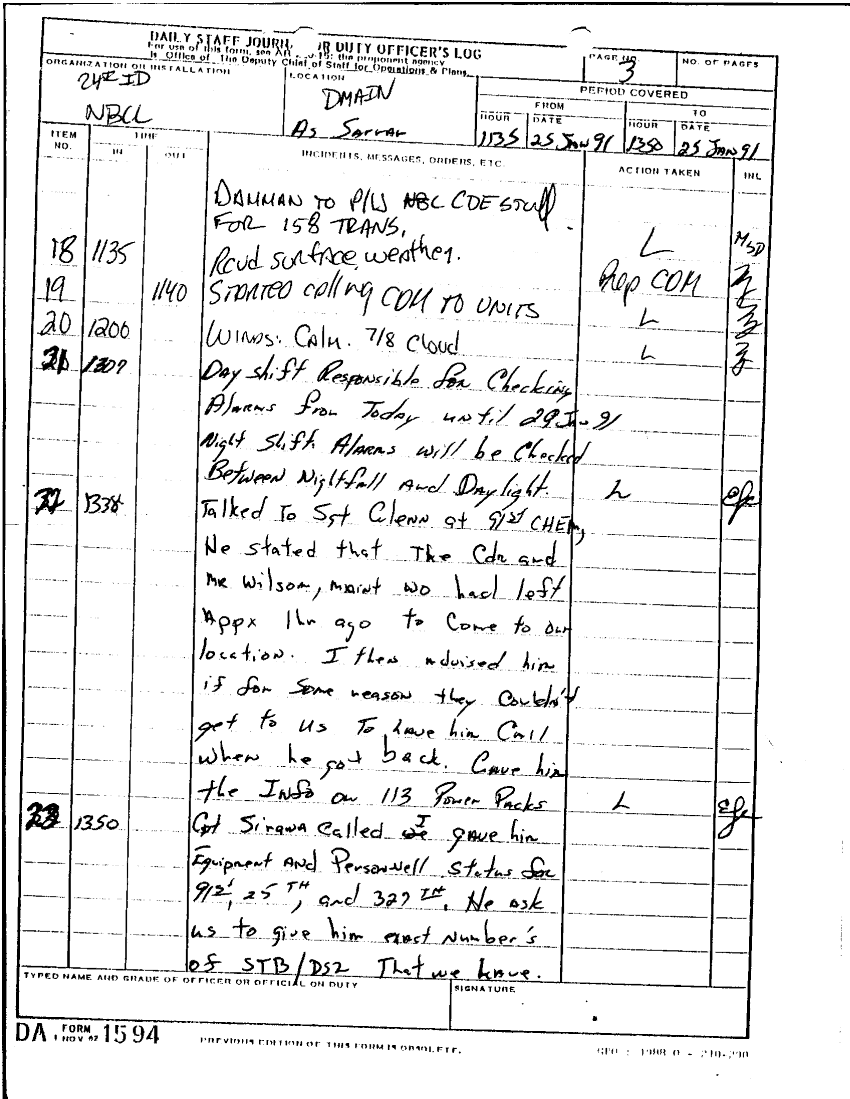 DAILY STAFF JOURNAL OR DUTY OFFICER'S LOG
For use of this form, see AR 220-15; the proponent agency
is Office of The Deputy Chief of Staff for Operations & Plans.
PAGE NO.
3
NO. OF PAGES
ORGANIZATION OR INSTALLATION
24th ID
NBCC
LOCATION
DMAIN
As Sarrar
PERIOD COVERED
FROM
TO
HOUR DATE HOUR DATE
1135 25 Jan 91 1350 25 Jan 91
ITEM NO.
TIME
IN OUT
INCIDENTS, MESSAGES, ORDERS, ETC.
ACTION TAKEN
INL
DAMMAN TO P/U NBC CDE STUFF
FOR 158 TRANS.
18 1135 Rcvd surface weather. L MSD
19 1140 STARTED calling CDM TO UNITS Rep CDM
20 1200 WINDS: Calm. 7/8 Cloud L
21 1307 Day shift Responsible for Checking L
Alarms from Today until 29 Jan 91
Night Shift Alarms will be Checked
Between Nightfall And Daylight. L
22 1338 Talked To Sgt Glenn at 91st CHEM,
He stated that The Cdr and
Mr Wilsom, maint WO had left
Appx 1hr ago to Come to our
location. I then advised him
if for some reason they Couldn't
get to us To have him Call
when he got back. Gave him
the Info on 113 Power Packs L
23 1350 Cpt Sirawa called I gave him
Equipment And Personnell Status for
91st, 25TH, and 327TH. He ask
us to give him exact Number's
of STB/DS2 That we have.
TYPED NAME AND GRADE OF OFFICER OR OFFICIAL ON DUTY
SIGNATURE
DA FORM 1 NOV 62 1594
PREVIOUS EDITION OF THIS FORM IS OBSOLETE.
GPO : 1988 0 - 210-290